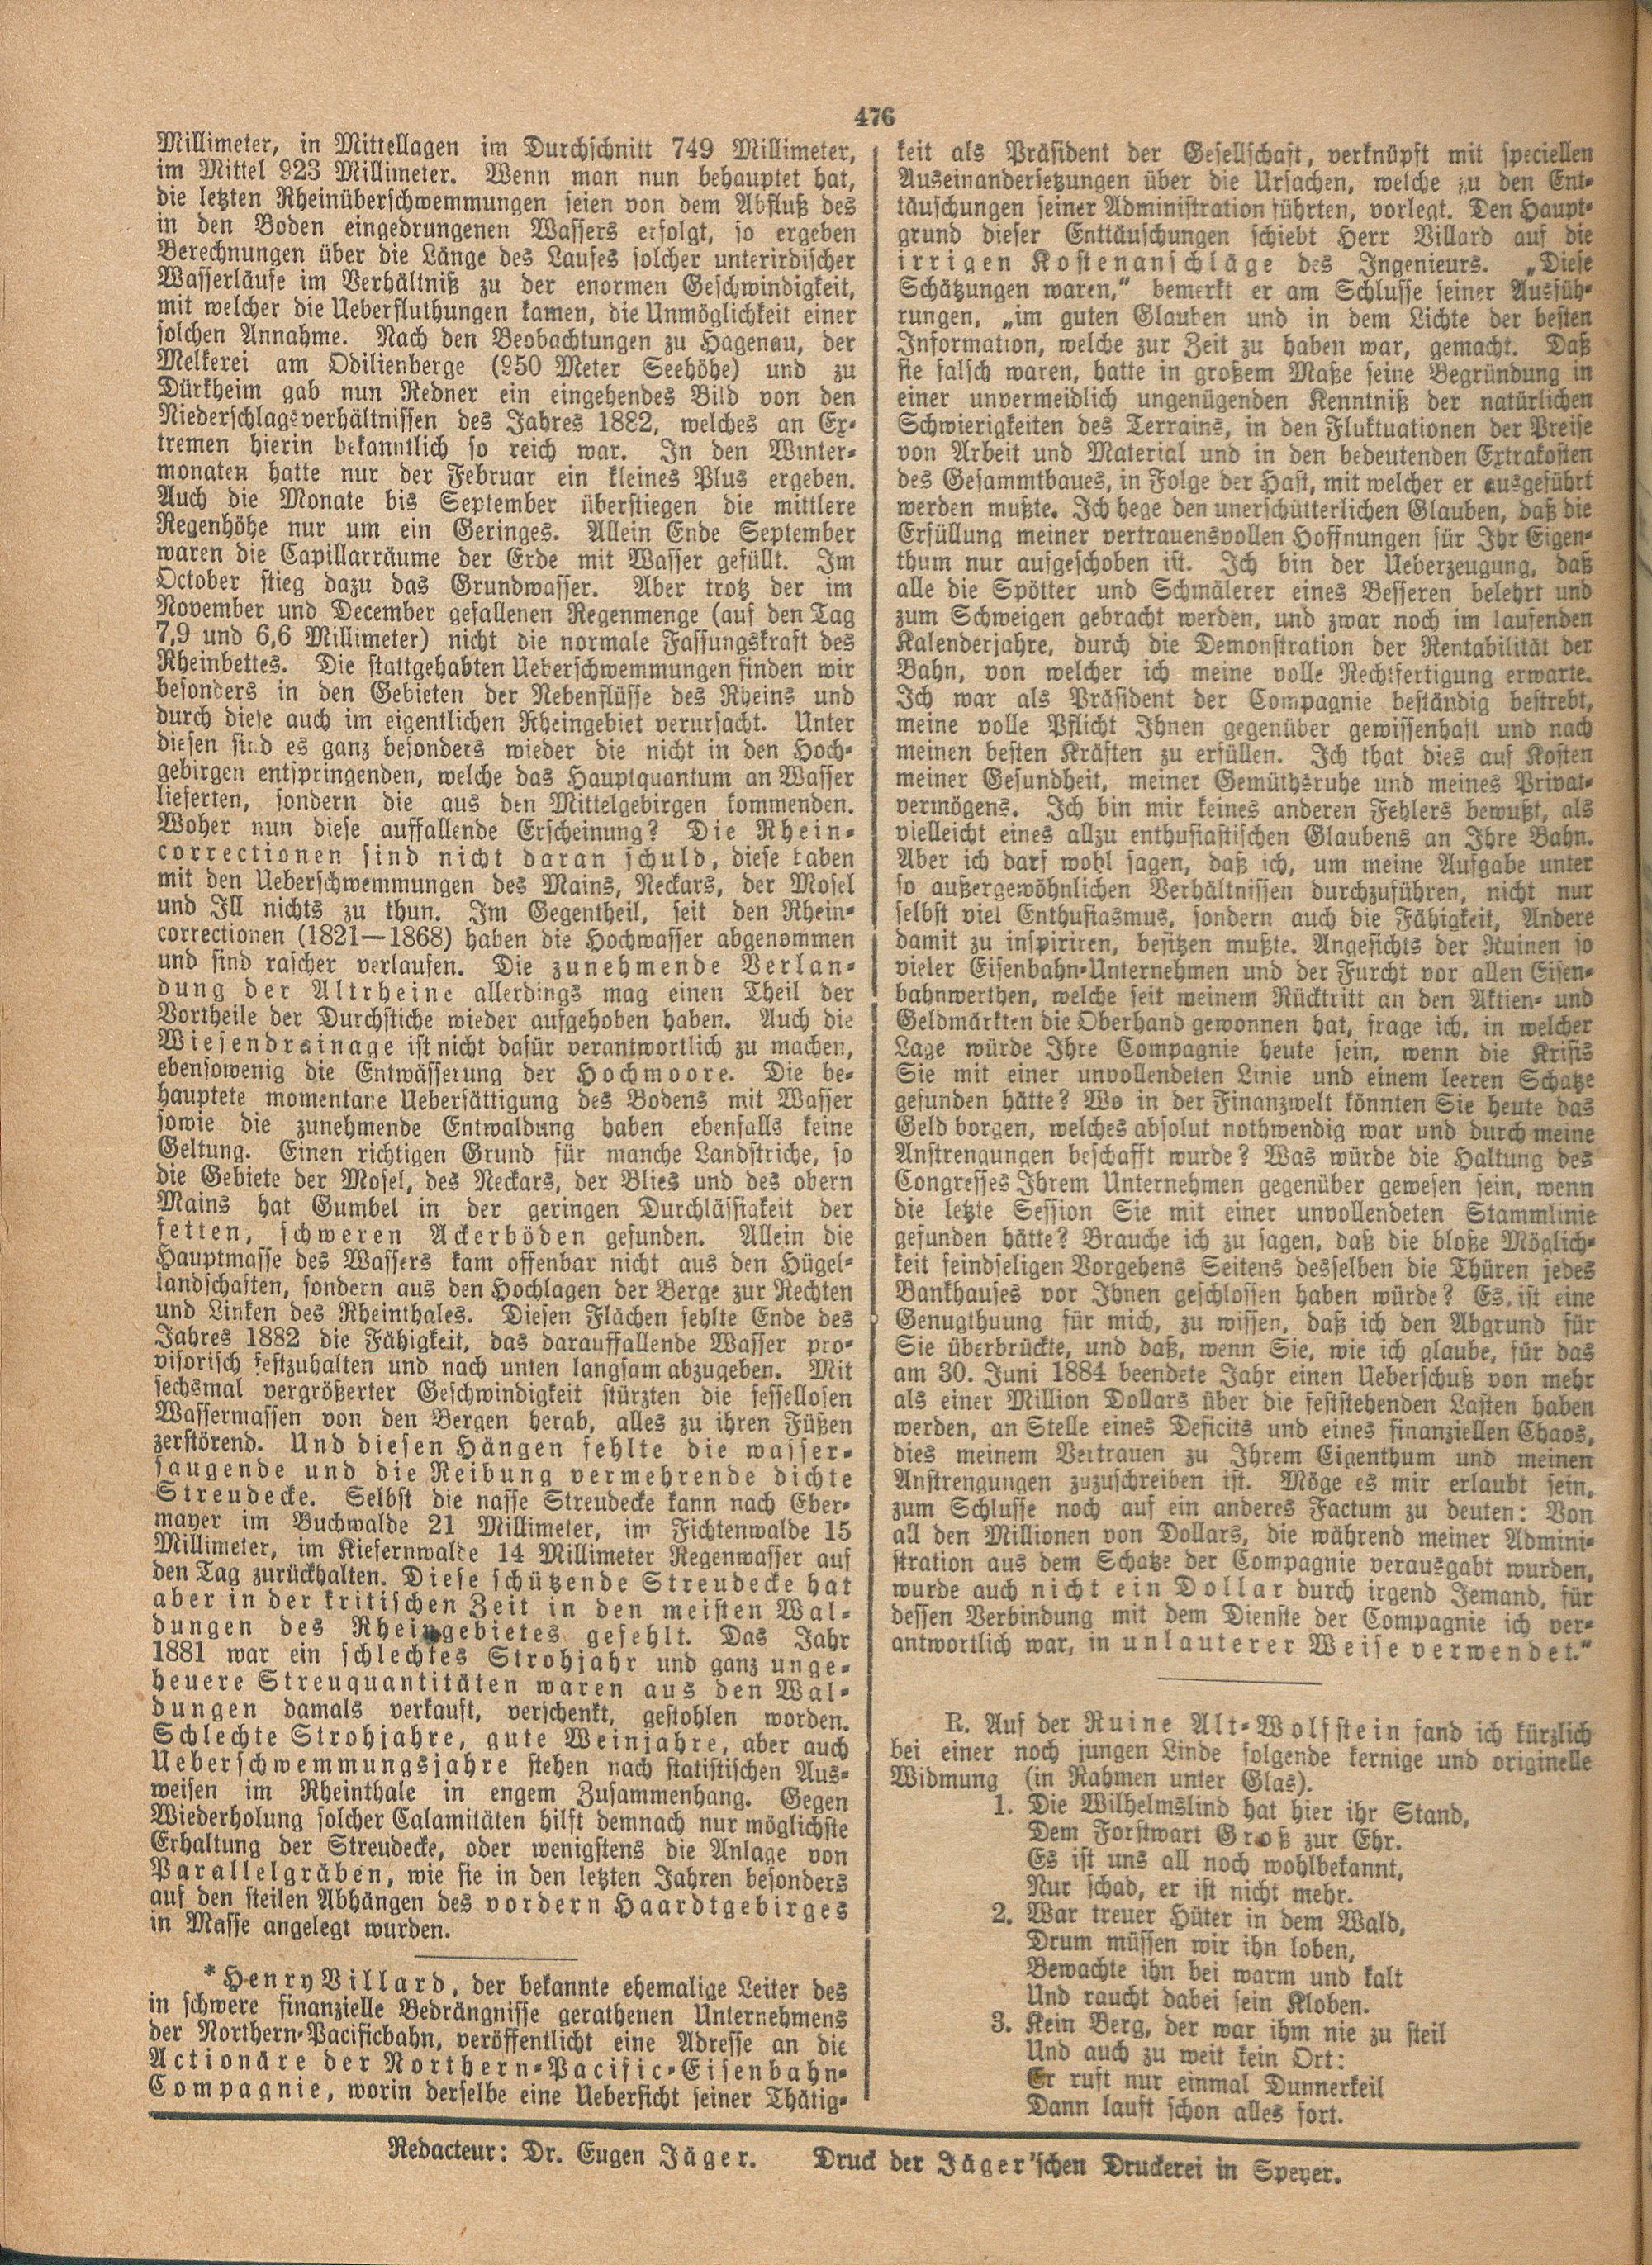 476
Millimeter, in Mittellagen im Durchschnitt 749 Millimeter,
im Mittel 923 Millimeter. Wenn man nun behauptet hat,
die letzten Rheinüberschwemmungen seien von dem Abfluß des
in den Boden eingedrungenen Wassers erfolgt, so ergeben
Berechnungen über die Länge des Laufes solcher unterirdischer
Wasserläufe im Verhältniß zu der enormen Geschwindigkeit,
mit welcher die Ueberfluthungen kamen, die Unmöglichkeit einer
solchen Annahme. Nach den Beobachtungen zu Hagenau, der
Melkerei am Odilienberge (950 Meter Seehöhe) und zu
Dürkheim gab nun Redner ein eingehendes Bild von den
Niederschlagsverhältnissen des Jahres 1882, welches an Ex-
tremen hierin bekanntlich so reich war. In den Winter-
monaten hatte nur der Februar ein kleines Plus ergeben.
Auch die Monate bis September überstiegen die mittlere
Regenhöhe nur um ein Geringes. Allein Ende September
waren die Capillarräume der Erde mit Wasser gefüllt. Im
October stieg dazu das Grundwasser. Aber trotz der im
November und December gefallenen Regenmenge (auf den Tag
7,9 und 6,6 Millimeter) nicht die normale Fassungskraft des
Rheinbettes. Die stattgehabten Ueberschwemmungen finden wir
besonders in den Gebieten der Nebenflüsse des Rheins und
durch diese auch im eigentlichen Rheingebiet verursacht. Unter
diesen sind es ganz besonders wieder die nicht in den Hoch-
gebirgen entspringenden, welche das Hauptquantum an Wasser
lieferten, sondern die aus den Mittelgebirgen kommenden.
Woher nun diese auffallende Erscheinung? Die Rhein-
correctionen sind nicht daran schuld, diese haben
mit den Ueberschwemmungen des Mains, Neckars, der Mosel
und Ill nichts zu thun. Im Gegentheil, seit den Rhein-
correctionen (1821—1868) haben die Hochwasser abgenommen
und sind rascher verlaufen. Die zunehmende Verlan-
dung der Altrheine allerdings mag einen Theil der
Vortheile der Durchstiche wieder aufgehoben haben. Auch die
Wiesendrainage ist nicht dafür verantwortlich zu machen,
ebensowenig die Entwässerung der Hochmoore. Die be-
hauptete momentane Uebersättigung des Bodens mit Wasser
sowie die zunehmende Entwaldung haben ebenfalls keine
Geltung. Einen richtigen Grund für manche Landstriche, so
die Gebiete der Mosel, des Neckars, der Blies und des obern
Mains hat Gumbel in der geringen Durchlässigkeit der
fetten, schweren Ackerböden gefunden. Allein die
Hauptmasse des Wassers kam offenbar nicht aus den Hügel-
landschaften, sondern aus den Hochlagen der Berge zur Rechten
und Linken des Rheinthales. Diesen Flächen fehlte Ende des
Jahres 1882 die Fähigkeit, das darauffallende Wasser pro-
visorisch festzuhalten und nach unten langsam abzugeben. Mit
sechsmal vergrößerter Geschwindigkeit stürzten die fessellosen
Wassermassen von den Bergen herab, alles zu ihren Füßen
zerstörend. Und diesen Hängen fehlte die wasser-
saugende und die Reibung vermehrende dichte
Streudecke. Selbst die nasse Streudecke kann nach Eber-
mayer im Buchwalde 21 Millimeter, im Fichtenwalde 15
Millimeter, im Kiefernwalde 14 Millimeter Regenwasser auf
den Tag zurückhalten. Diese schützende Streudecke hat
aber in der kritischen Zeit in den meisten Wal-
dungen des Rheingebietes gefehlt. Das Jahr
1881 war ein schlechtes Strohjahr und ganz unge-
heuere Streuquantitäten waren aus den Wal-
dungen damals verkauft, verschenkt, gestohlen worden.
Schlechte Strohjahre, gute Weinjahre, aber auch
Ueberschwemmungsjahre stehen nach statistischen Aus-
weisen im Rheinthale in engem Zusammenhang. Gegen
Wiederholung solcher Calamitäten hilft demnach nur möglichste
Erhaltung der Streudecke, oder wenigstens die Anlage von
Parallelgräben, wie sie in den letzten Jahren besonders
auf den steilen Abhängen des vordern Haardtgebirges
in Masse angelegt wurden.
* Henry Villard, der bekannte ehemalige Leiter des
in schwere finanzielle Bedrängnisse gerathenen Unternehmens
der Northern-Pacificbahn, veröffentlicht eine Adresse an die
Actionäre der Northern-Pacific-Eisenbahn-
Compagnie, worin derselbe eine Uebersicht seiner Thätig-
keit als Präsident der Gesellschaft, verknüpft mit speciellen
Auseinandersetzungen über die Ursachen, welche zu den Ent-
täuschungen seiner Administration führten, vorlegt. Den Haupt-
grund dieser Enttäuschungen schiebt Herr Villard auf die
irrigen Kostenanschläge des Ingenieurs. „Diese
Schätzungen waren,“ bemerkt er am Schlusse seiner Ausfüh-
rungen, „im guten Glauben und in dem Lichte der besten
Information, welche zur Zeit zu haben war, gemacht. Daß
sie falsch waren, hatte in großem Maße seine Begründung in
einer unvermeidlich ungenügenden Kenntniß der natürlichen
Schwierigkeiten des Terrains, in den Fluktuationen der Preise
von Arbeit und Material und in den bedeutenden Extrakosten
des Gesammtbaues, in Folge der Hast, mit welcher er ausgeführt
werden mußte. Ich hege den unerschütterlichen Glauben, daß die
Erfüllung meiner vertrauensvollen Hoffnungen für Ihr Eigen-
thum nur aufgeschoben ist. Ich bin der Ueberzeugung, daß
alle die Spötter und Schmälerer eines Besseren belehrt und
zum Schweigen gebracht werden, und zwar noch im laufenden
Kalenderjahre, durch die Demonstration der Rentabilität der
Bahn, von welcher ich meine volle Rechtfertigung erwarte.
Ich war als Präsident der Compagnie beständig bestrebt,
meine volle Pflicht Ihnen gegenüber gewissenhaft und nach
meinen besten Kräften zu erfüllen. Ich that dies auf Kosten
meiner Gesundheit, meiner Gemüthsruhe und meines Privat-
vermögens. Ich bin mir keines anderen Fehlers bewußt, als
vielleicht eines allzu enthusiastischen Glaubens an Ihre Bahn.
Aber ich darf wohl sagen, daß ich, um meine Aufgabe unter
so außergewöhnlichen Verhältnissen durchzuführen, nicht nur
selbst viel Enthusiasmus, sondern auch die Fähigkeit, Andere
damit zu inspiriren, besitzen mußte. Angesichts der Ruinen so
vieler Eisenbahn-Unternehmen und der Furcht vor allen Eisen-
bahnwerthen, welche seit meinem Rücktritt an den Aktien- und
Geldmärkten die Oberhand gewonnen hat, frage ich, in welcher
Lage würde Ihre Compagnie heute sein, wenn die Krisis
Sie mit einer unvollendeten Linie und einem leeren Schatze
gefunden hätte? Wo in der Finanzwelt könnten Sie heute das
Geld borgen, welches absolut nothwendig war und durch meine
Anstrengungen beschafft wurde? Was würde die Haltung des
Congresses Ihrem Unternehmen gegenüber gewesen sein, wenn
die letzte Session Sie mit einer unvollendeten Stammlinie
gefunden hätte? Brauche ich zu sagen, daß die bloße Möglich-
keit feindseligen Vorgehens Seitens desselben die Thüren jedes
Bankhauses vor Ihnen geschlossen haben würde? Es ist eine
Genugthuung für mich, zu wissen, daß ich den Abgrund für
Sie überbrückte, und daß, wenn Sie, wie ich glaube, für das
am 30. Juni 1884 beendete Jahr einen Ueberschuß von mehr
als einer Million Dollars über die feststehenden Lasten haben
werden, an Stelle eines Deficits und eines finanziellen Chaos,
dies meinem Vertrauen zu Ihrem Eigenthum und meinen
Anstrengungen zuzuschreiben ist. Möge es mir erlaubt sein,
zum Schlusse noch auf ein anderes Factum zu deuten: Von
all den Millionen von Dollars, die während meiner Admini-
stration aus dem Schatze der Compagnie verausgabt wurden,
wurde auch nicht ein Dollar durch irgend Jemand, für
dessen Verbindung mit dem Dienste der Compagnie ich ver-
antwortlich war, in unlauterer Weise verwendet.“
R. Auf der Ruine Alt-Wolfstein fand ich kürzlich
bei einer noch jungen Linde folgende kernige und originelle
Widmung (in Rahmen unter Glas).
1. Die Wilhelmslind hat hier ihr Stand,
Dem Forstwart Groß zur Ehr.
Es ist uns all noch wohlbekannt,
Nur schad, er ist nicht mehr.
2. War treuer Hüter in dem Wald,
Drum müssen wir ihn loben,
Bewachte ihn bei warm und kalt
Und raucht dabei sein Kloben.
3. Kein Berg, der war ihm nie zu steil
Und auch zu weit kein Ort:
Er ruft nur einmal Dunnerkeil
Dann lauft schon alles fort.
Redacteur: Dr. Eugen Jäger. Druck der Jäger'schen Druckerei in Speyer.